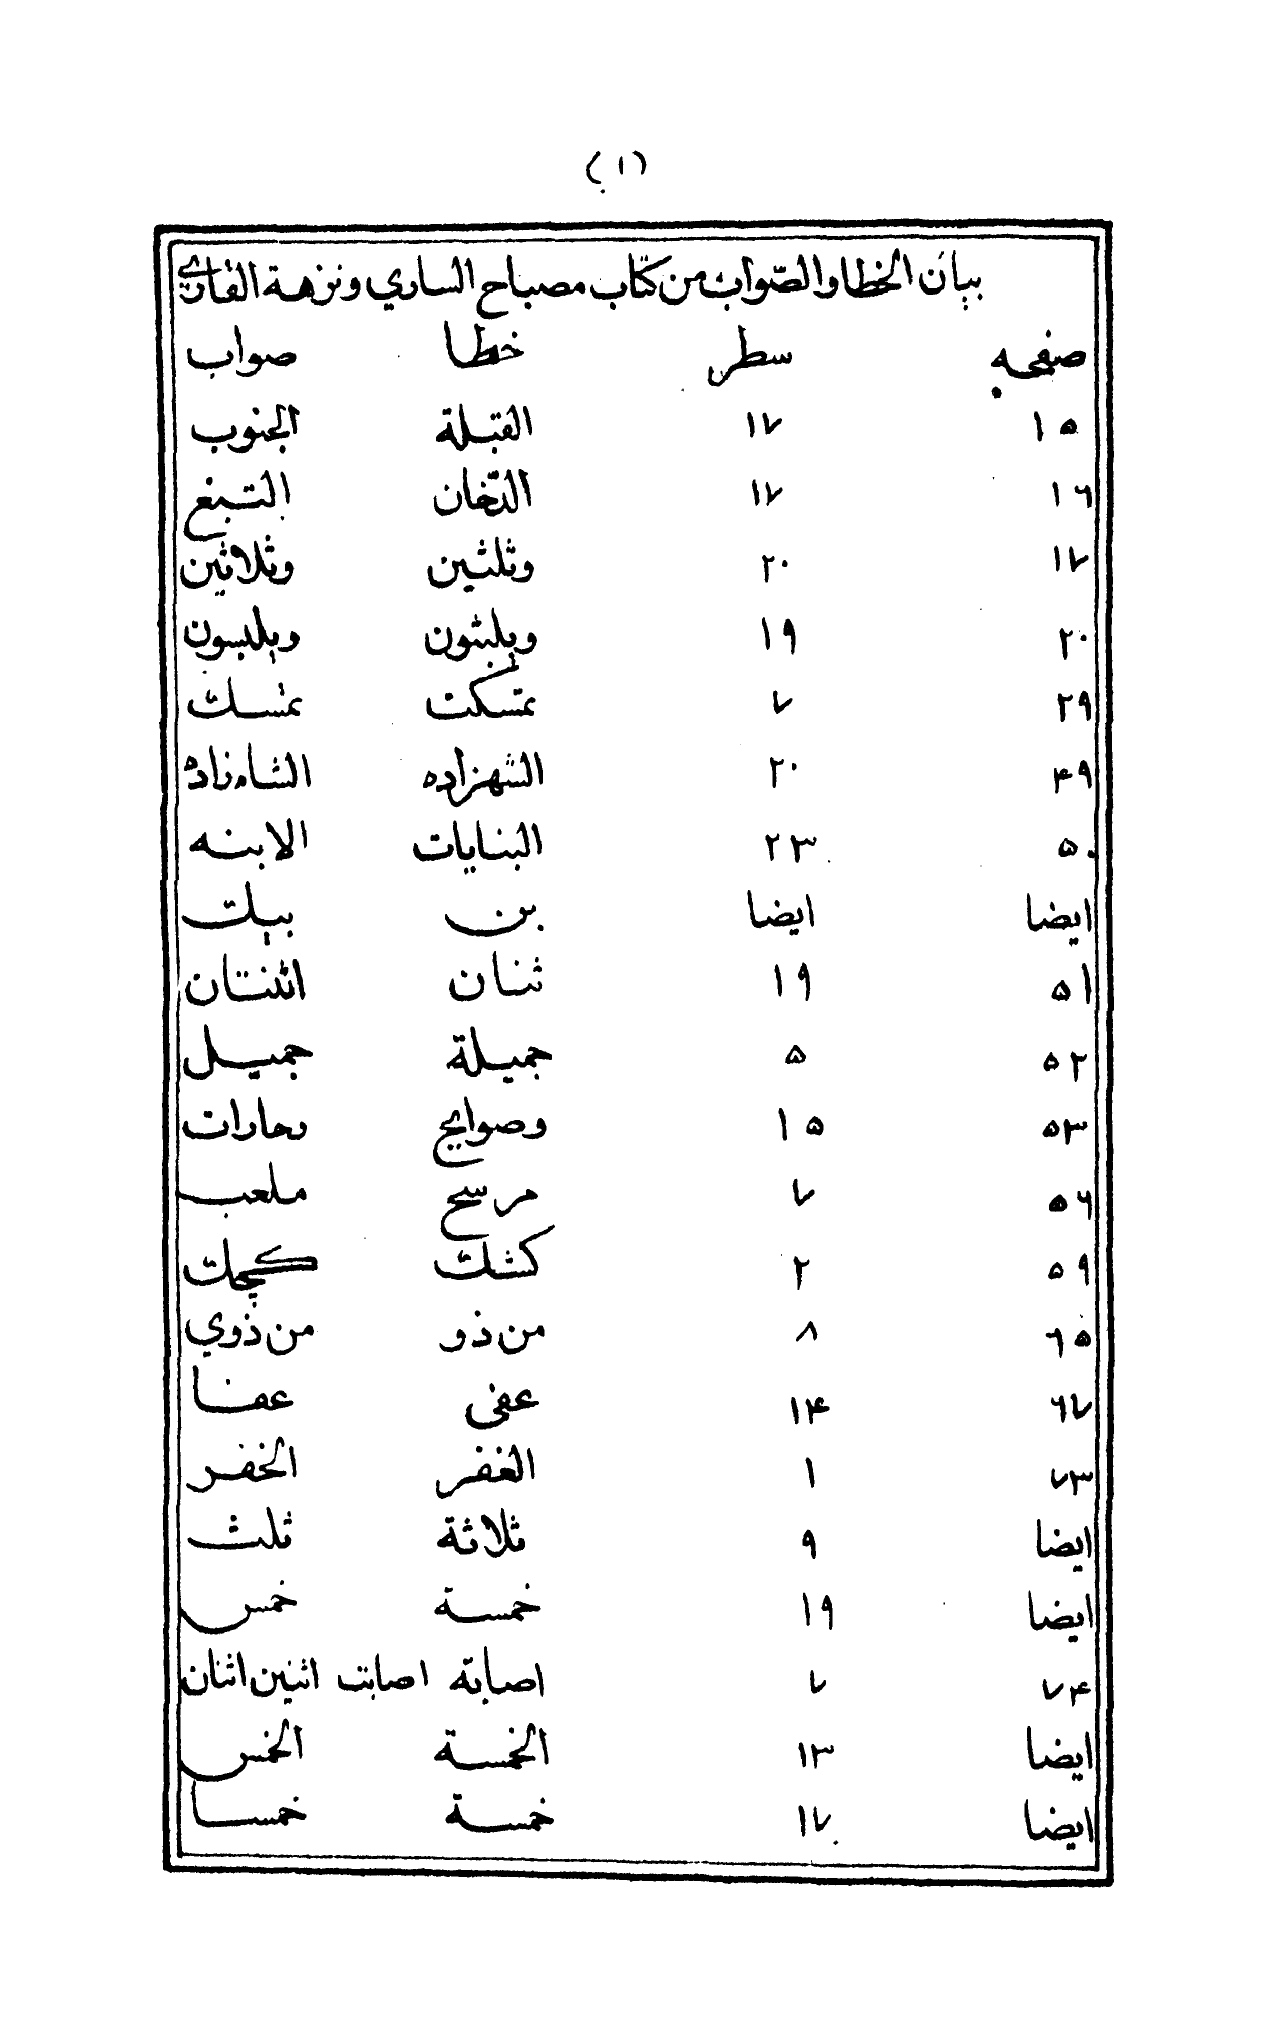 (١)
بيان الخطا والصّواب من كتاب مصباح الساري ونزهة القاري
صفحه سطر خطا صواب
١٥ ١٧ القبلة الجنوب
١٦ ١٧ الدّخان التبغ
١٧ ٢٠ وثلثين وثلاثين
٢٠ ١٩ ويلبثون ويلبسون
٢٩ ٧ تمسكت تمسك
٤٩ ٢٠ الشهزاده الشاه زاده
٥٠ ٢٣ البنايات الابنه
ايضا ايضا بن بيك
٥١ ١٩ ثنان اثنتان
٥٢ ٥ جميلة جميل
٥٣ ١٥ وصوايح وحارات
٥٦ ٧ مرسح ملعب
٥٩ ٢ كشك
٦٥ ٨ من ذو من ذوي
٦٧ ١٤ عفى عفا
٧٣ ١ الغفر الخفر
ايضا ٩ ثلاثة ثلث
ايضا ١٩ خمسة خمس
٧٤ ٧ اصابته اصابت اثنين اثنان
ايضا ١٣ الخمسة الخمس
ايضا ١٧ خمسة خمسا